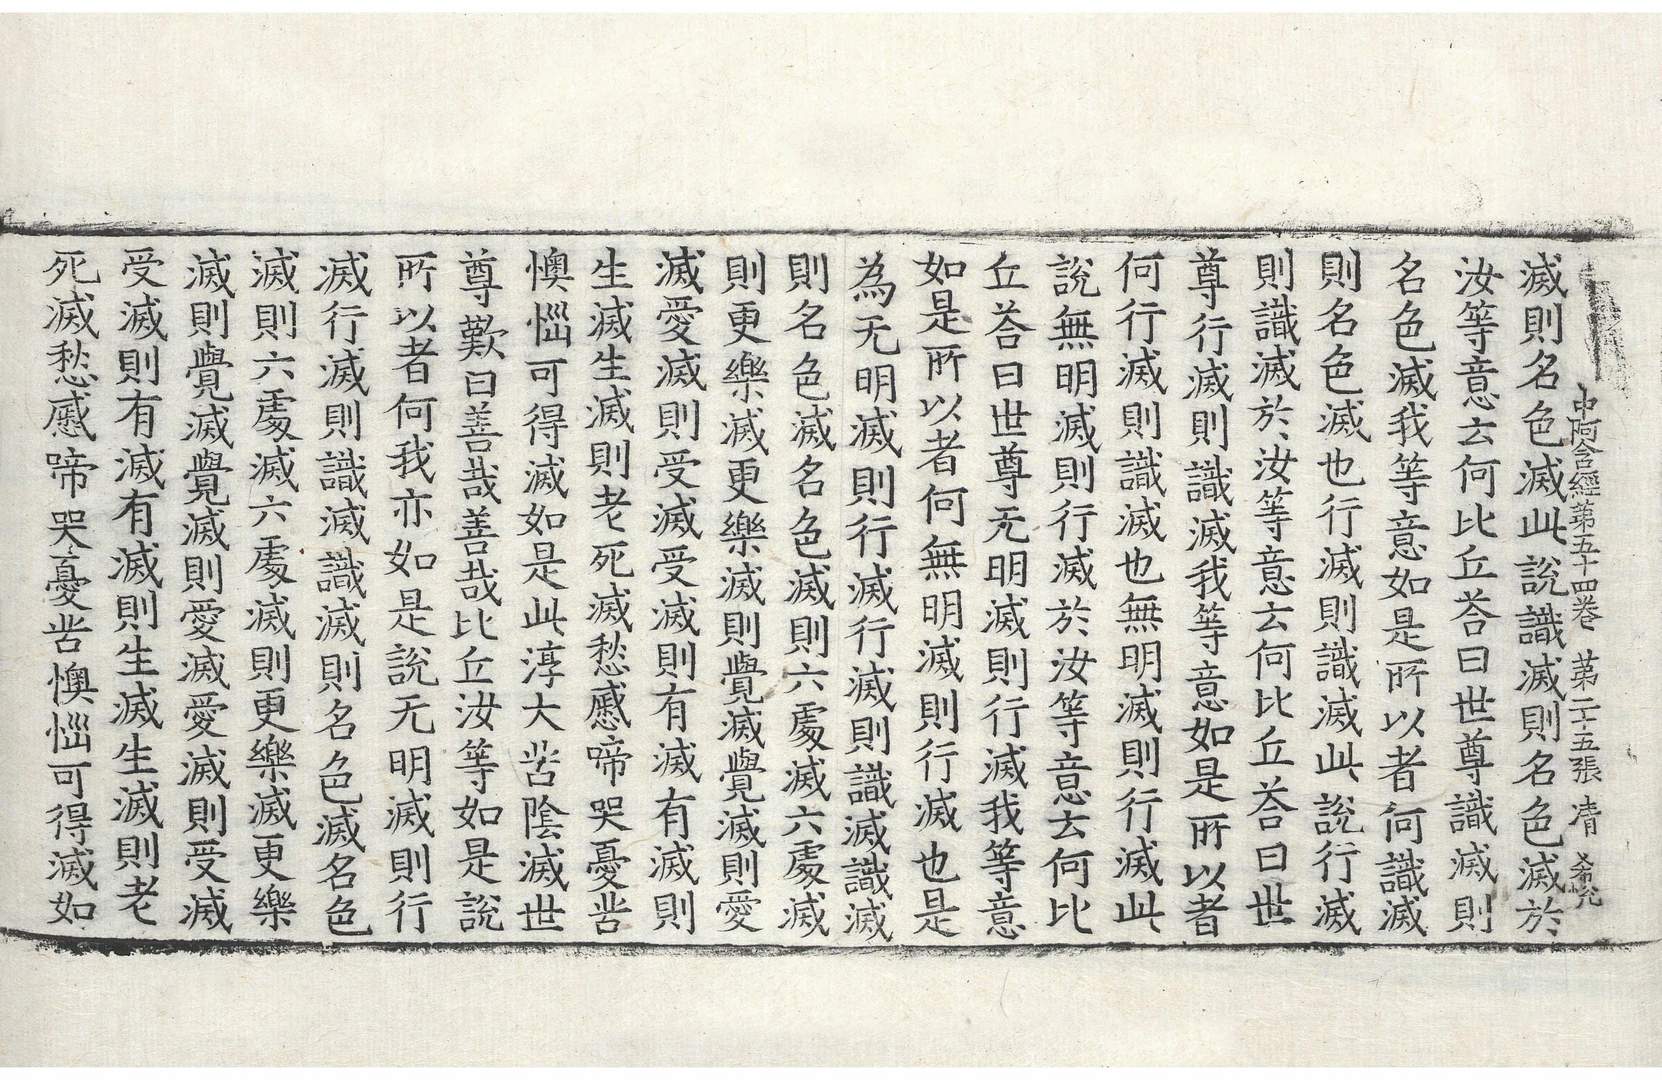 中阿含經第五十四卷　第二十五張　清
滅則名色滅此說識滅則名色滅於
汝等意云何比丘荅曰世尊識滅則
名色滅我等意如是所以者何識滅
則名色滅也行滅則識滅此說行滅
則識滅於汝等意云何比丘荅曰世
尊行滅則識滅我等意如是所以者
何行滅則識滅也無明滅則行滅此
說無明滅則行滅於汝等意云何比
丘荅曰世尊无明滅則行滅我等意
如是所以者何無明滅則行滅也是
為无明滅則行滅行滅則識滅識滅
則名色滅名色滅則六處滅六處滅
則更樂滅更樂滅則覺滅覺滅則愛
滅愛滅則受滅受滅則有滅有滅則
生滅生滅則老死滅愁慼啼哭憂苦
懊惱可得滅如是此淳大苦陰滅世
尊歎曰善哉善哉比丘汝等如是說
所以者何我亦如是說无明滅則行
滅行滅則識滅識滅則名色滅名色
滅則六處滅六處滅則更樂滅更樂
滅則覺滅覺滅則愛滅愛滅則受滅
受滅則有滅有滅則生滅生滅則老
死滅愁慼啼哭憂苦懊惱可得滅如